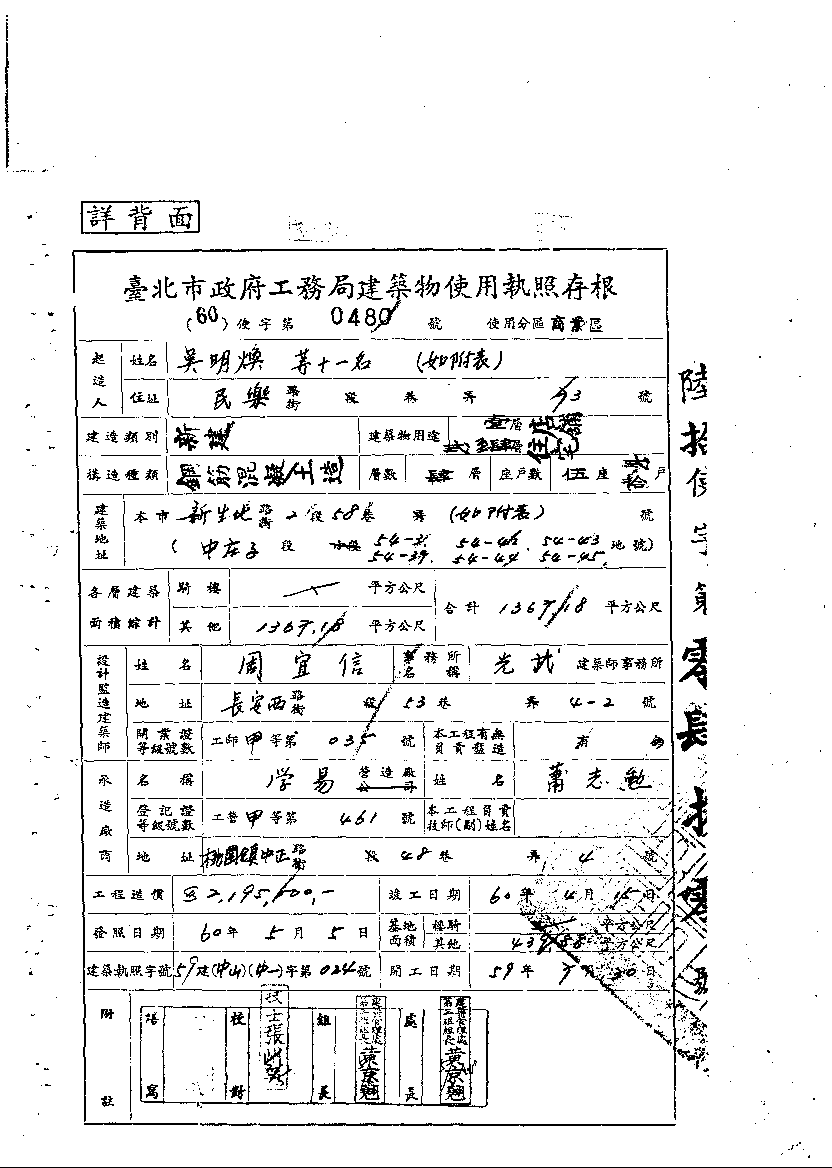 詳背面
臺北市政府工務局建築物使用執照存根
(60)使字第 0480 號 使用分區 商業區
起造人 姓名 吳明煥 等十一名 (如附表)
住址 民樂 路街 段 巷 弄 73 號
建造類別 新建 建築物用途 壹層店鋪 貳至肆層住宅
構造種類 鋼筋混凝土造 層數 肆層 座戶數 伍座 戶
建築地址 本市 新生北 路街 2段58巷 弄 (如附表) 號
(中庄子段 小段 54-43 54-39 54-44 54-45 地號)
各層建築面積綜計 騎樓 平方公尺 合計 1367.18 平方公尺
其他 1367.18 平方公尺
設計監造建築師 姓名 周宜信 事務所名稱 光武 建築師事務所
地址 長安西 路街 段 53巷 弄 4-2 號
開業證等級號數 工師甲等第 035 號 本工程有無員責監造 有
承造廠商 名稱 学易 營造廠公司 姓名 蕭志勉
登記證等級號數 工營甲等第 461 號 本工程員責技師(副)姓名
地址 桃園鎮中正 路街 段 48巷 弄 4 號
工程造價 2,195,600,- 竣工日期 60年4月15日
發照日期 60年5月5日 基地面積 騎樓 平方公尺
其他 平方公尺
建築執照字號 59建(中山)(中一)字第024號 開工日期 59年 月20日
附註 繕寫 校對 技士張 組長 黃京翹 處長 黃京翹
陸拾使字第零肆捌零號